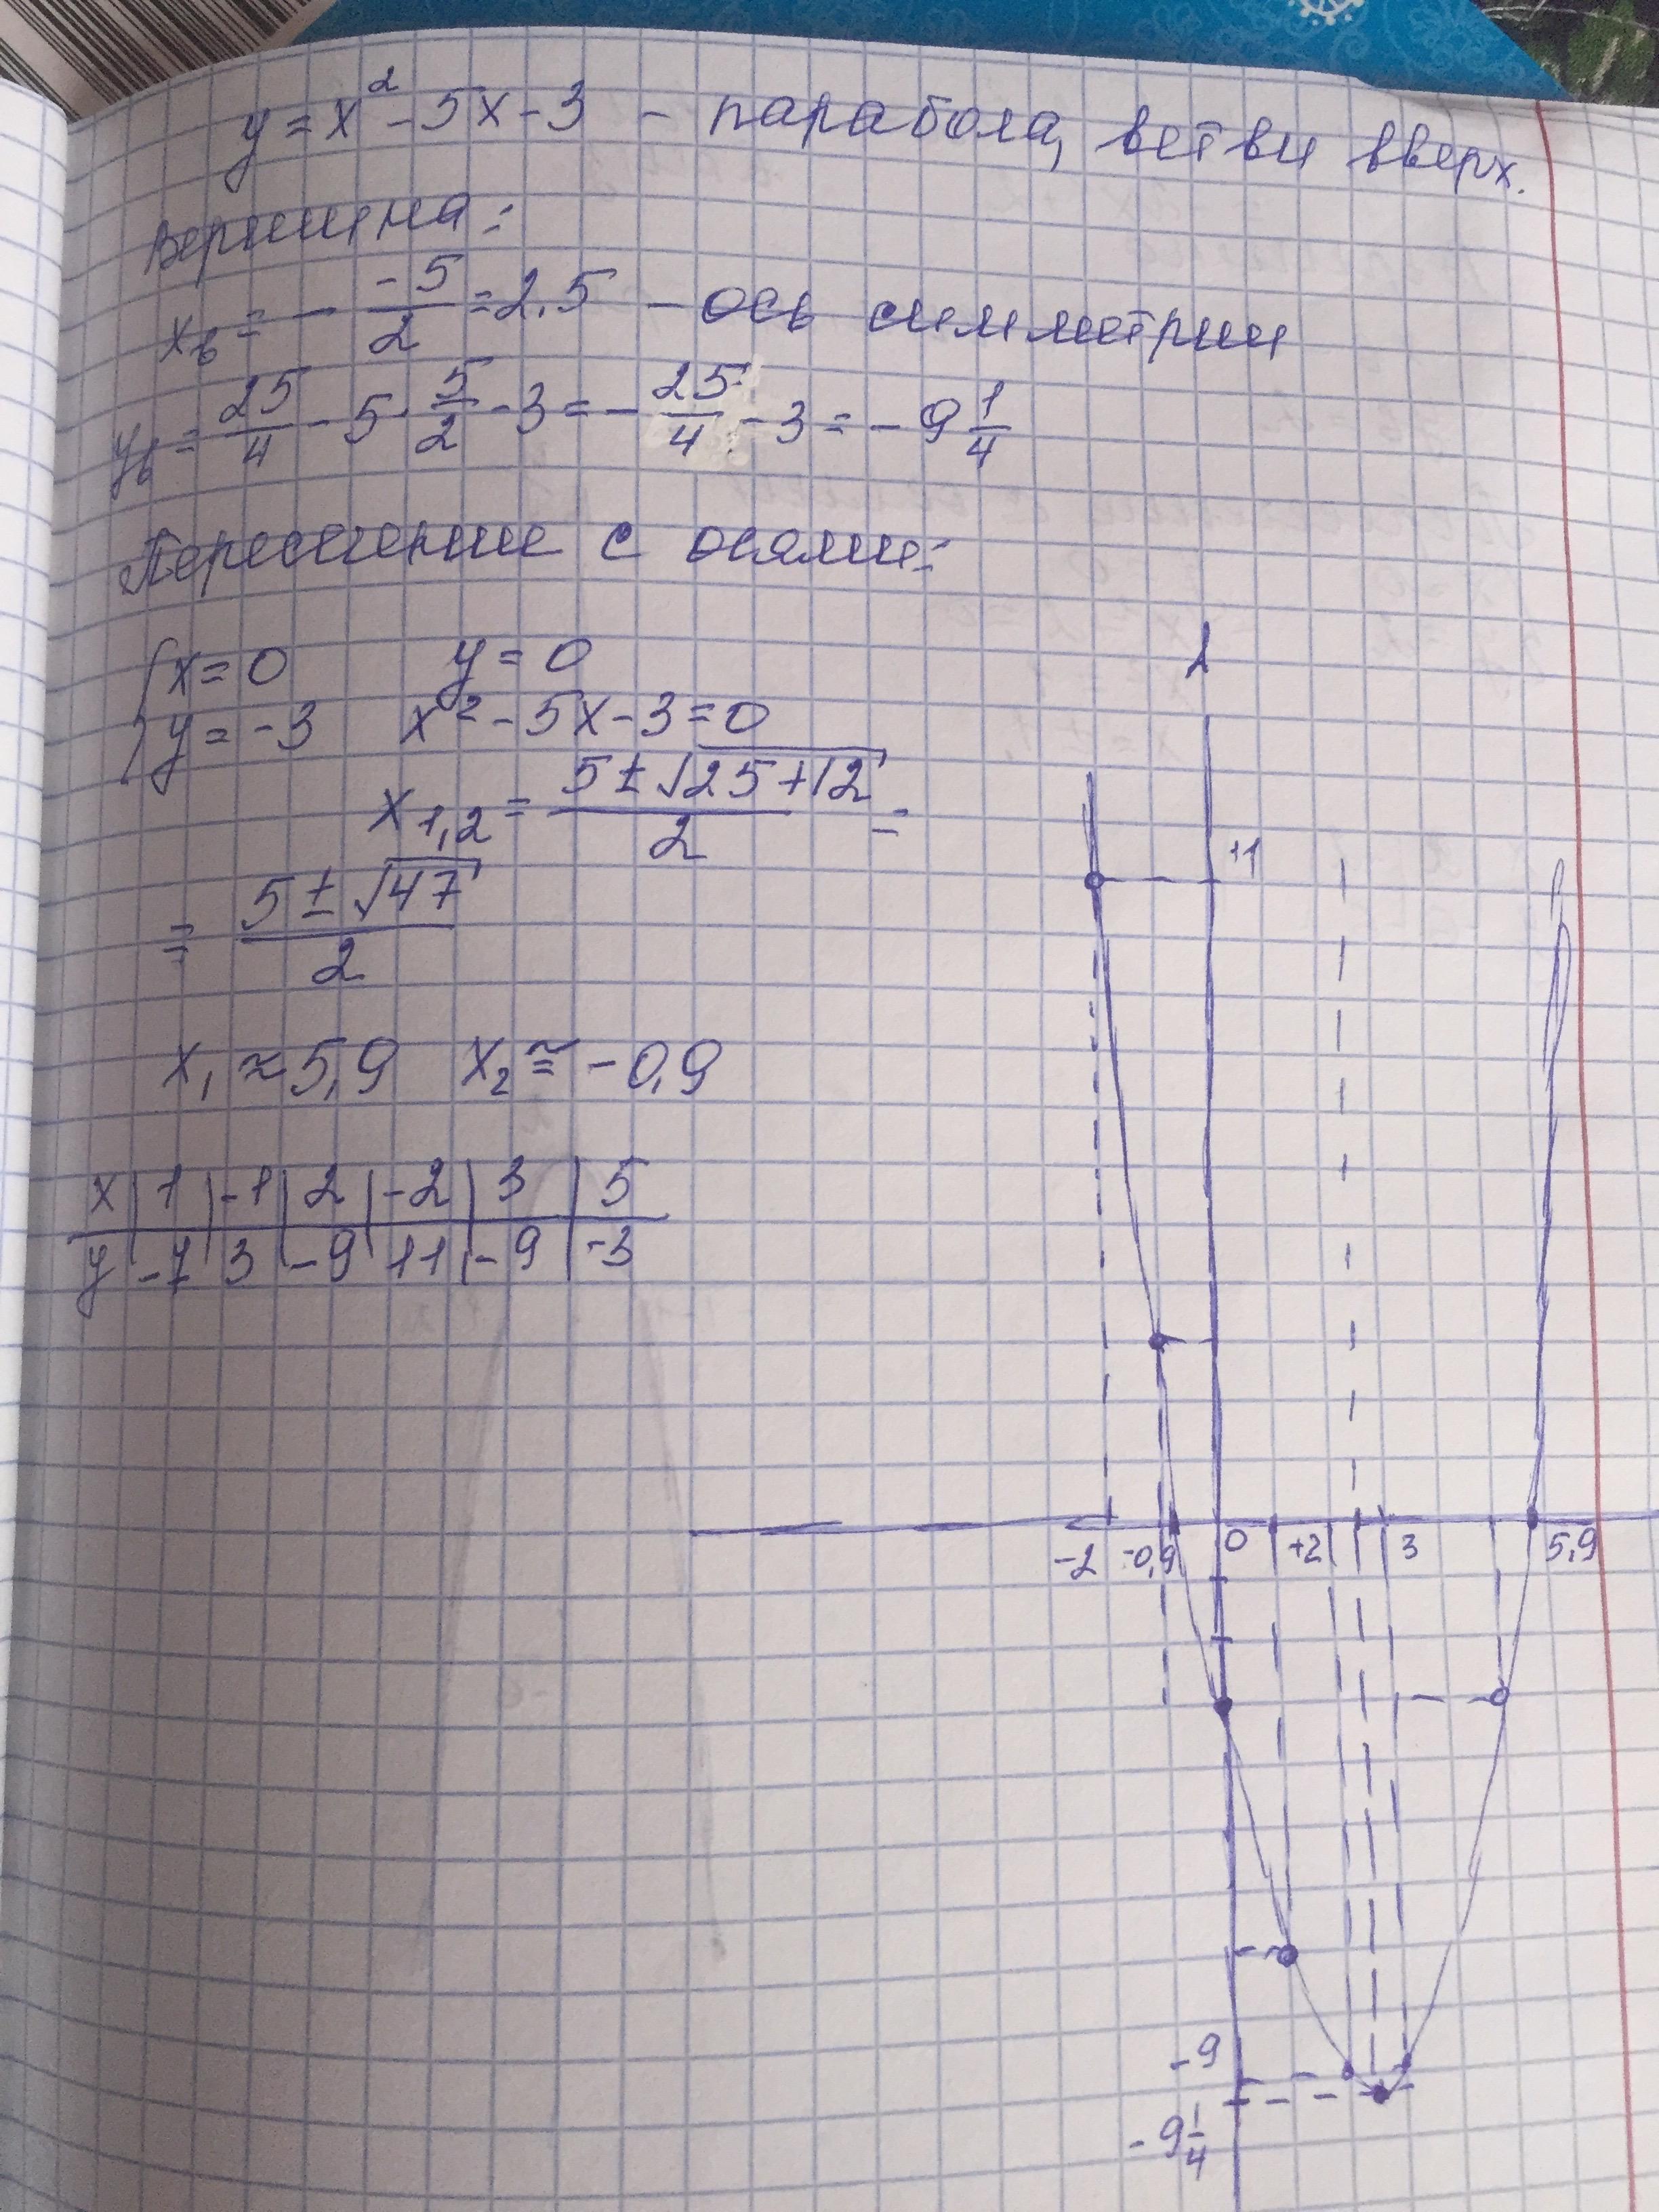 y = x² - 5x - 3 - парабола, ветви вверх.
Вершина:
xв = - -5/2 = 2,5 - ось симметрии
yв = 25/4 - 5 · 5/2 - 3 = - 25/4 - 3 = - 9 1/4
Пересечение с осями:
{ x = 0 y = 0
y = -3 x² - 5x - 3 = 0
x1,2 = (5 ± √25+12)/2 =
= (5 ± √47)/2
x1 ≈ 5,9 x2 ≅ -0,9
x | 1 | -1 | 2 | -2 | 3 | 5
y -7 3 -9 11 -9 -3
11
-2 -0,9 0 +2 3 5,9
-9
-9 1/4